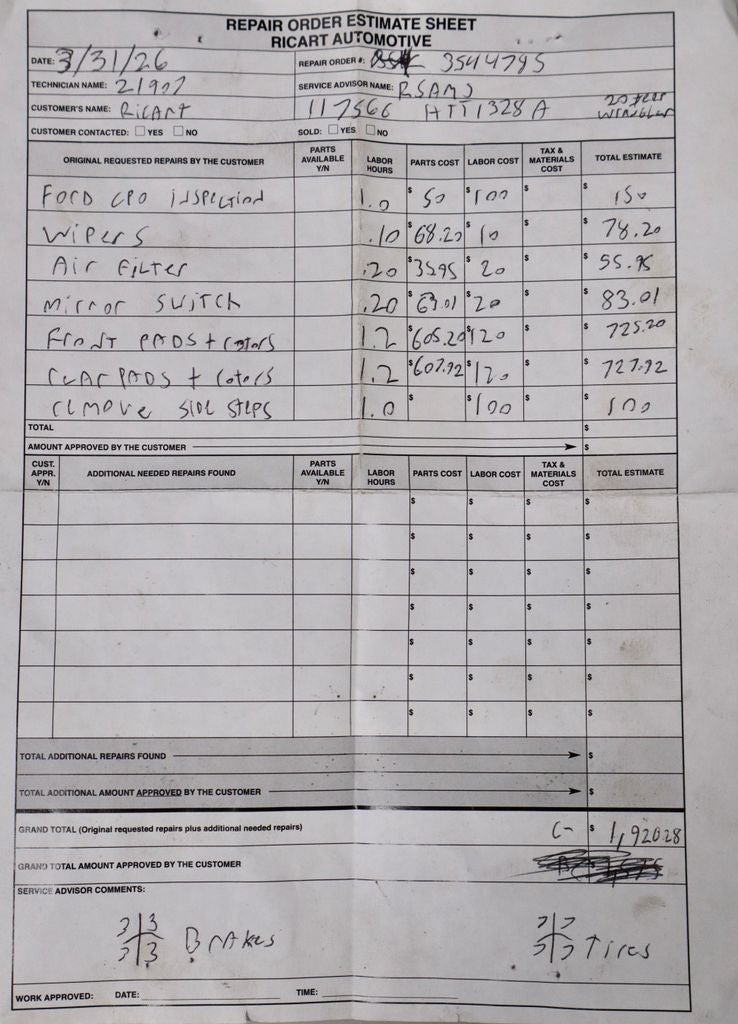 REPAIR ORDER ESTIMATE SHEET
RICART AUTOMOTIVE
DATE: 3/31/26 REPAIR ORDER #: 3544785
TECHNICIAN NAME: 21907 SERVICE ADVISOR NAME: RSAMJ
CUSTOMER'S NAME: RICART 117566 HTT1328A
CUSTOMER CONTACTED: YES NO SOLD: YES NO
ORIGINAL REQUESTED REPAIRS BY THE CUSTOMER PARTS AVAILABLE Y/N LABOR HOURS PARTS COST LABOR COST TAX & MATERIALS COST TOTAL ESTIMATE
FORD CPO INSPECTION 1.0 $ 50 $ 100 $ $ 150
WIPERS .10 $ 68.20 $ 10 $ $ 78.20
AIR FILTER .20 $ 35.95 $ 20 $ $ 55.95
MIRROR SWITCH .20 $ 63.01 $ 20 $ $ 83.01
FRONT PADS + rotors 1.2 $ 605.20 $ 120 $ $ 725.20
rEAr PADS + rotors 1.2 $ 607.92 $ 120 $ $ 727.92
rEMOVE SIDE STEPS 1.0 $ $ 100 $ $ 100
TOTAL $
AMOUNT APPROVED BY THE CUSTOMER $
CUST. APPR. Y/N ADDITIONAL NEEDED REPAIRS FOUND PARTS AVAILABLE Y/N LABOR HOURS PARTS COST LABOR COST TAX & MATERIALS COST TOTAL ESTIMATE
$ $ $ $
$ $ $ $
$ $ $ $
$ $ $ $
$ $ $ $
$ $ $ $
$ $ $ $
TOTAL ADDITIONAL REPAIRS FOUND $
TOTAL ADDITIONAL AMOUNT APPROVED BY THE CUSTOMER $
GRAND TOTAL (Original requested repairs plus additional needed repairs) C- $ 1,920.28
GRAND TOTAL AMOUNT APPROVED BY THE CUSTOMER
SERVICE ADVISOR COMMENTS:
3 3 7 7
3 3 BrAKes 7 7 Tires
WORK APPROVED: DATE: TIME: